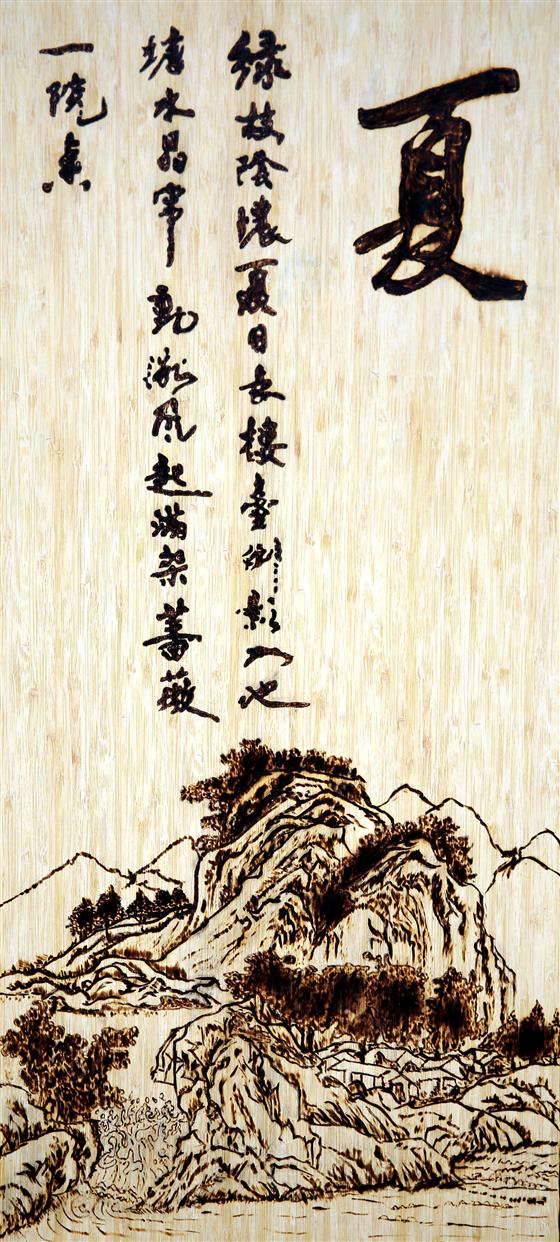 夏
绿树陰濃夏日長樓臺倒影入池
塘水晶帘動微风起滿架薔薇
一院香